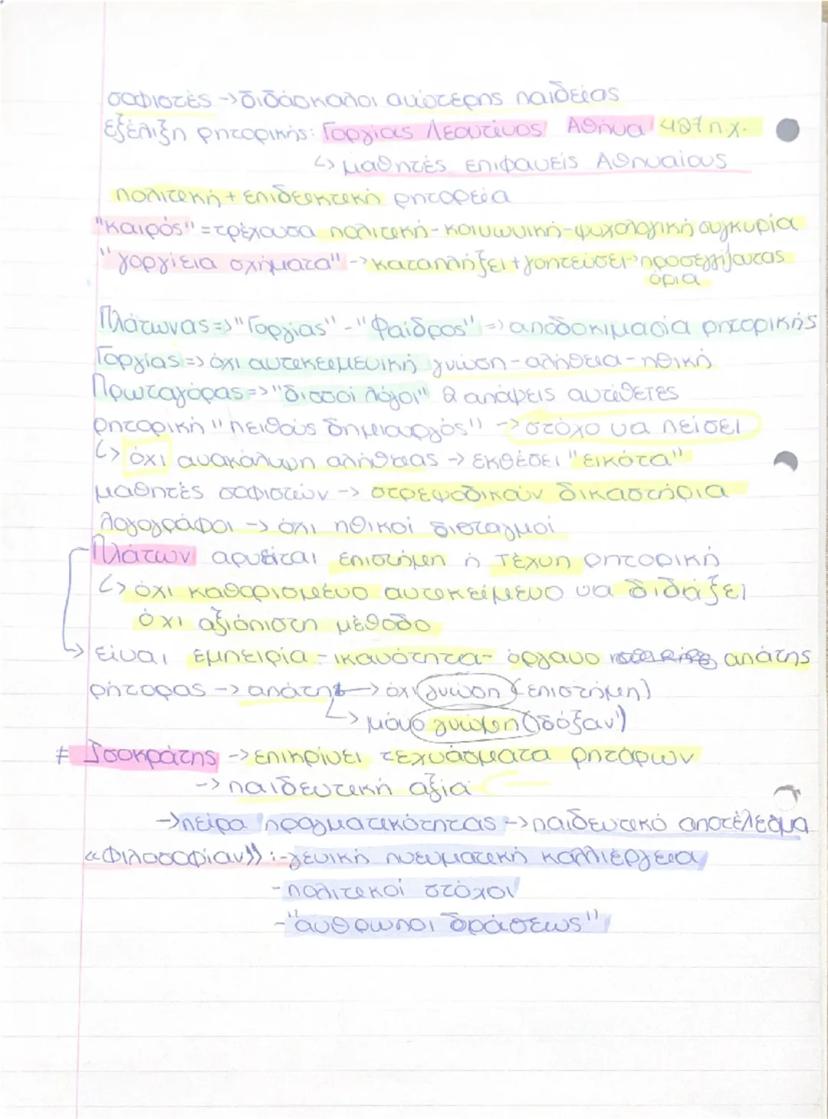 σοφιστές → διδάσκαλοι ανώτερης παιδείας
εξέλιξη ρητορικής: Γοργίας Λεοντίνος Αθήνα 427 π.χ.
↳ μαθητές επιφανείς Αθηναίους
πολιτική + επιδεικτική ρητορεία
"καιρός" = τρέχουσα πολιτική - κοινωνική - ψυχολογική συγκυρία
"γοργίεια σχήματα" → καταπλήξει + γοητεύσει → προσεγγίζοντας
όρια
Πλάτωνας => "Γοργίας" - "Φαίδρος" => αποδοκιμασία ρητορικής
Γοργίας => όχι αντικειμενική γνώση - αλήθεια - ηθική
Πρωταγόρας => "δισσοί λόγοι" 2 απόψεις αντίθετες
ρητορική "πειθούς δημιουργός" → στόχο να πείσει
↳ όχι ανακάλυψη αλήθειας → εκθέσει "εικότα"
μαθητές σοφιστών → στρεψοδικούν δικαστήρια
λογογράφοι → όχι ηθικοί δισταγμοί
Πλάτων αρνείται επιστήμη ή τέχνη ρητορική
↳ όχι καθορισμένο αντικείμενο να διδάξει
όχι αξιόπιστη μέθοδο
→ είναι εμπειρία - ικανότητα - όργανο απάτης
ρήτορας → απάτη → όχι γνώση (επιστήμη)
↳ μόνο γνώμη (δόξαν)
≠ Ισοκράτης → επικρίνει τεχνάσματα ρητόρων
→ παιδευτική αξία
→ πείρα πραγματικότητας → παιδευτικό αποτέλεσμα
«Φιλοσοφίαν» : - γενική πνευματική καλλιέργεια
- πολιτικοί στόχοι
- "άνθρωποι δράσεως"